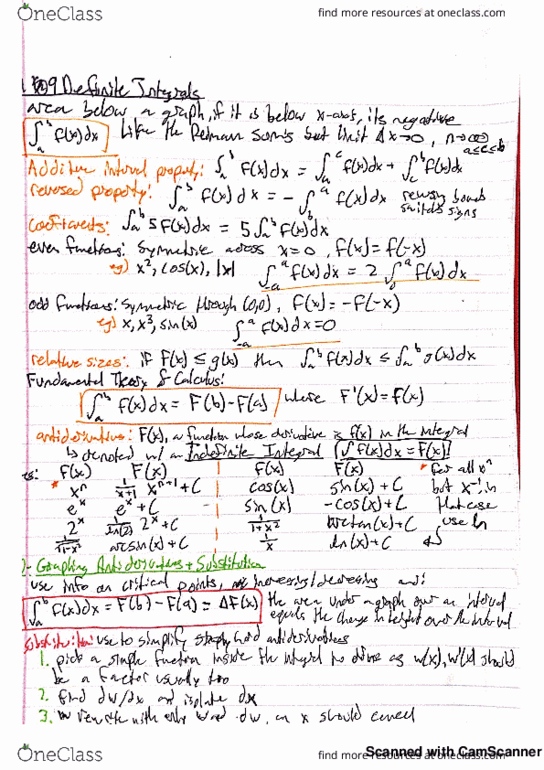 OneClass
find more resources at oneclass.com
Definite Integrals
area below a graph, if it is below x-axis, its negative
∫ₐᵇ f(x)dx Like the Reimann Sums but limit Δx→0, n→∞
a≤c≤b
Additive interval property: ∫ₐᵇ f(x)dx = ∫ₐᶜ f(x)dx + ∫cᵇ f(x)dx
reversed property: ∫ₐᵇ f(x)dx = -∫bᵃ f(x)dx reversing bounds
switches signs
coefficients: ∫ₐᵇ 5f(x)dx = 5∫ₐᵇ f(x)dx
even functions: Symmetric across x=0, f(x)=f(-x)
eg) x², cos(x), |x| ∫₋ₐᵃ f(x)dx = 2∫₀ᵃ f(x)dx
odd functions: Symmetric through (0,0), f(x)=-f(-x)
eg) x, x³, sin(x) ∫₋ₐᵃ f(x)dx=0
relative sizes: if f(x) ≤ g(x) then ∫ₐᵇ f(x)dx ≤ ∫ₐᵇ g(x)dx
Fundamental Theory of Calculus:
∫ₐᵇ f(x)dx = F(b)-F(a) where F'(x)=f(x)
antiderivative: F(x), a function whose derivative is f(x) in the integral
↳ denoted w/ an Indefinite Integral ∫f(x)dx = F(x)
f(x) F(x) f(x) F(x) * for all xⁿ
xⁿ 1/(x+1) xⁿ⁺¹ + C cos(x) sin(x) + C but x⁻¹, in
eˣ eˣ + C sin(x) -cos(x) + C that case
2ˣ 1/ln(2) 2ˣ + C 1/(1+x²) arctan(x) + C use ln
1/√(1-x²) arcsin(x) + C 1/x ln(x) + C
Graphing Antiderivatives + Substitution
use info on critical points, increasing/decreasing and:
∫ₐᵇ f(x)dx = F(b)-F(a) = ΔF(x) the area under a graph over an interval
equals the change in height over the interval
Substitution: use to simplify hard antiderivatives
1. pick a simple function inside the integral to define as w(x), w'(x) should
be a factor usually too
2. find dw/dx and isolate dx
3. rewrite with only w and dw, x should cancel
OneClass
find more resources at oneclass.com
Scanned with CamScanner